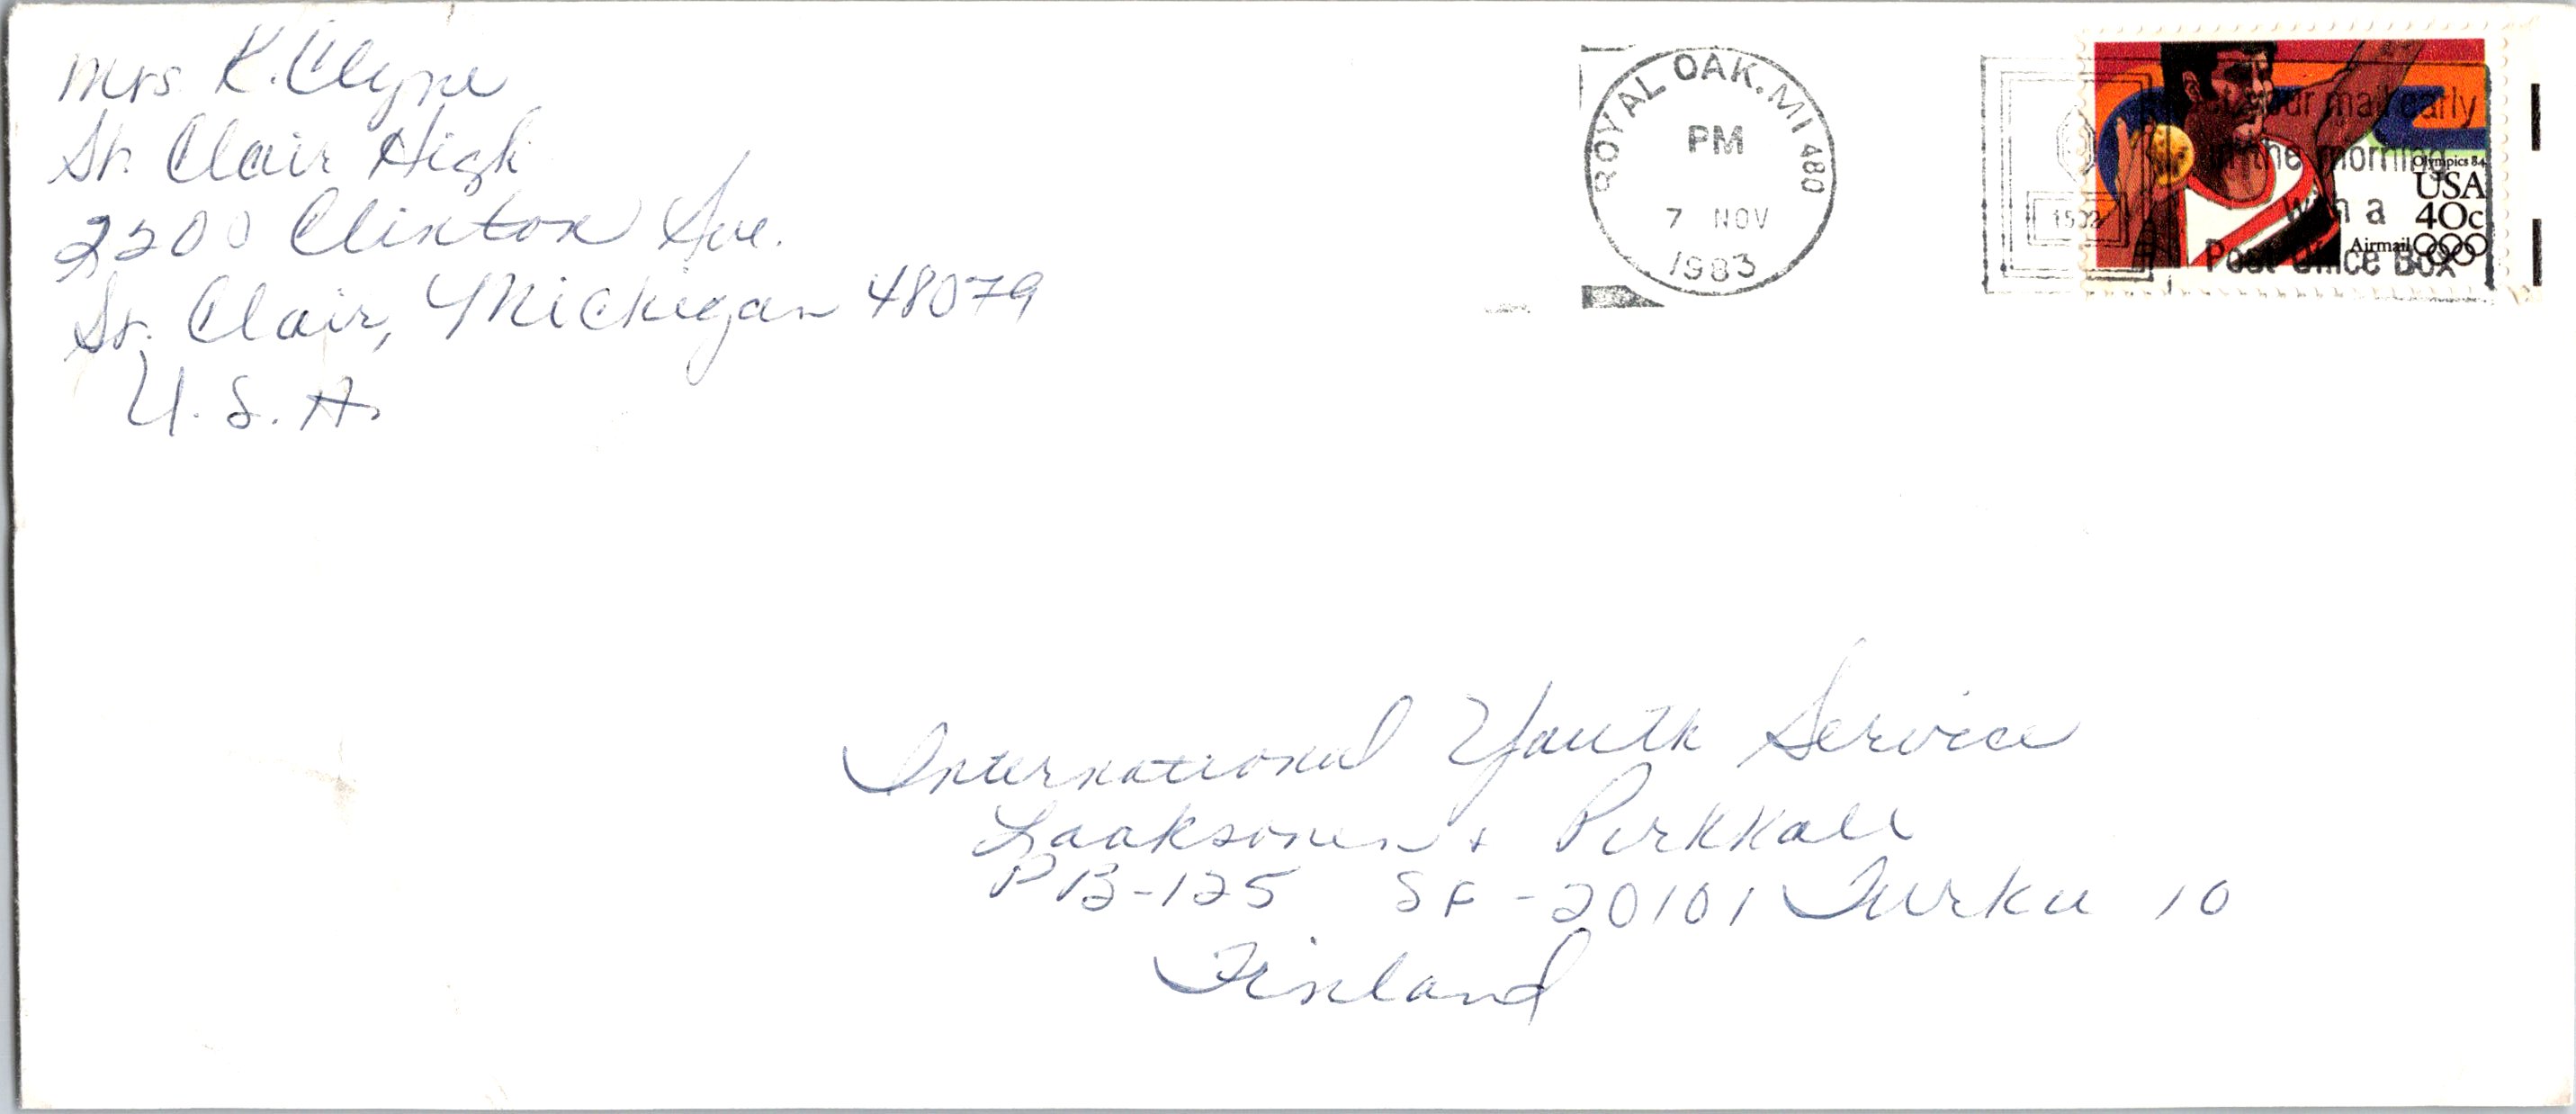 Mrs K. Clyne
St. Clair High
2200 Clinton Ave.
St. Clair, Michigan 48079
U.S.A.
ROYAL OAK, MI 480
PM
7 NOV
1983
your mail early
in the morning
with a
Post Office Box
Olympics 84
USA
40c
Airmail
International Youth Service
Laaksonen + Pirkkali
PB-125 SF-20101 Turku 10
Finland